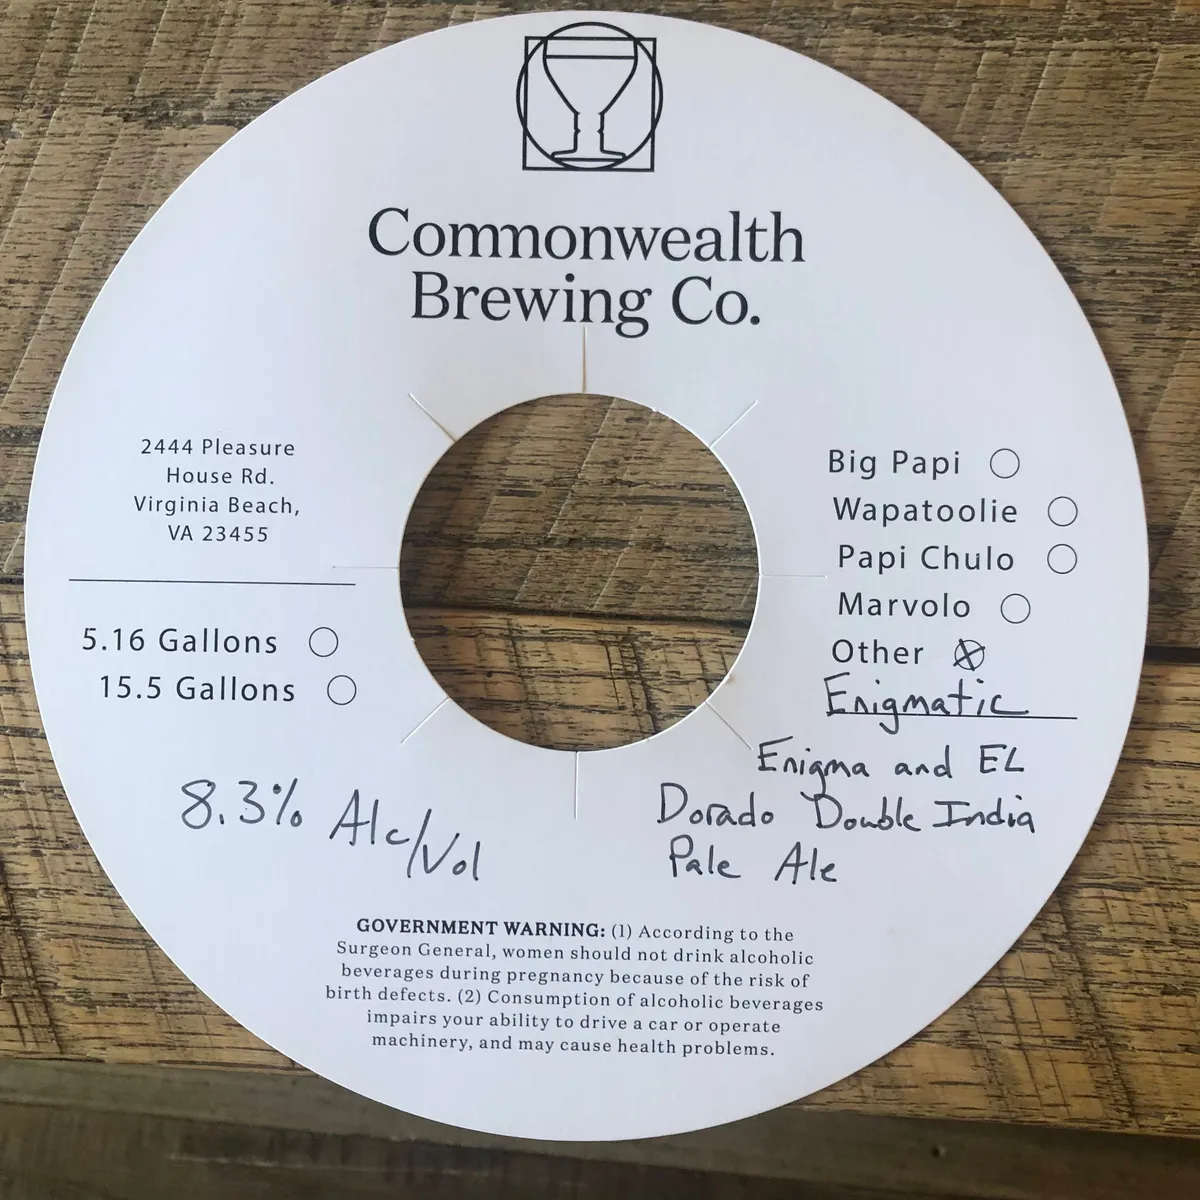 Commonwealth
Brewing Co.
2444 Pleasure
House Rd.
Virginia Beach,
VA 23455
5.16 Gallons
15.5 Gallons
Big Papi
Wapatoolie
Papi Chulo
Marvolo
Other
Enigmatic
Enigma and EL
Dorado Double India
Pale Ale
8.3% Alc/Vol
GOVERNMENT WARNING: (1) According to the
Surgeon General, women should not drink alcoholic
beverages during pregnancy because of the risk of
birth defects. (2) Consumption of alcoholic beverages
impairs your ability to drive a car or operate
machinery, and may cause health problems.